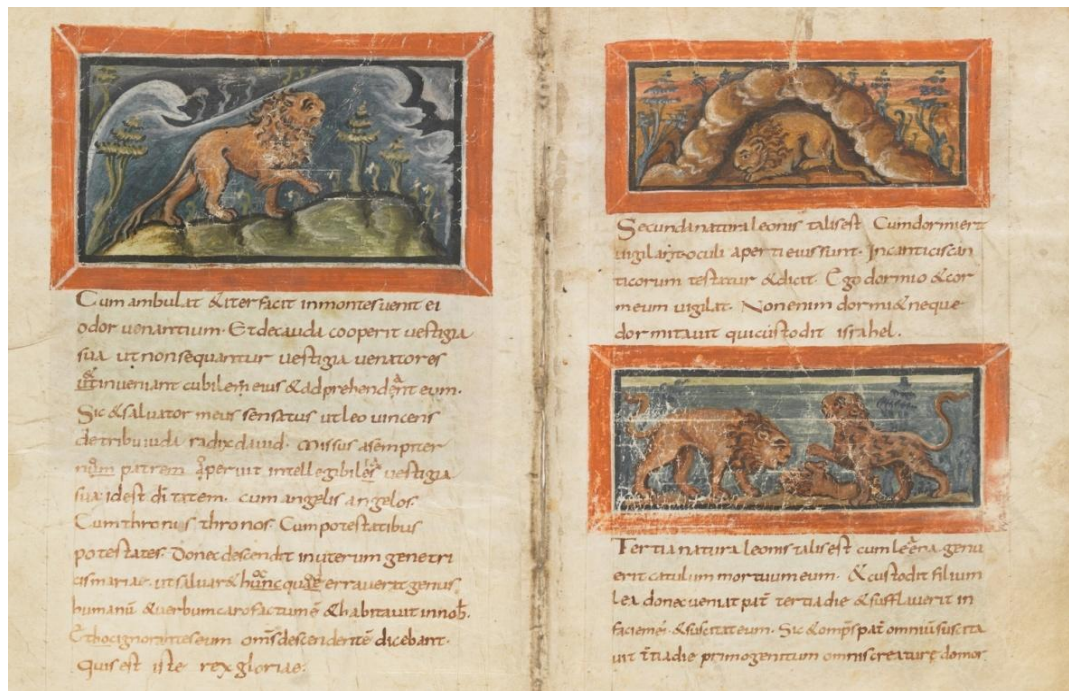 Cum ambulat &iter facit in montes uenit ei
odor uenantium. Et decauda cooperit uestigia
sua ut non sequantur uestigia uenatores
inueniant cubilem eius & adprehendant eum.
Sic & saluator meus sensatus ut leo uincens
de tribu iuda radix dauid. missus a sempiter
patrem uestigia
sua id est di tatem. cum angelis angelos.
Cum thronus thronos. Cum potestatibus
potestates. Donec descendit in uterum genetri
cis mariae. ut saluar& errauerat genus
humanū & uerbum caro factum ē & habitauit in nob.
Et hoc ignorantes eum om̄s descendentē dicebant.
Quis est iste rex gloriae.
Secunda natura leonis talis est Cum dormiert
uigilant oculi aperti eius sunt. In canticis can
ticorum testatur & dicit. Ego dormio & cor
meum uigilat. Non enim dormi& neque
dormitauit qui custodit israhel.
Tertia natura leonis talis est cum leena genu
erit catulum mortuum eum. & custodit filium
lea donec ueniat pat̄ tertia die & sufflauerit in
faciem ei & suscitat eum. Sic & omp̄s pat̄ omniū suscita
uit t̄tia die primogenitum omnis creaturę domor